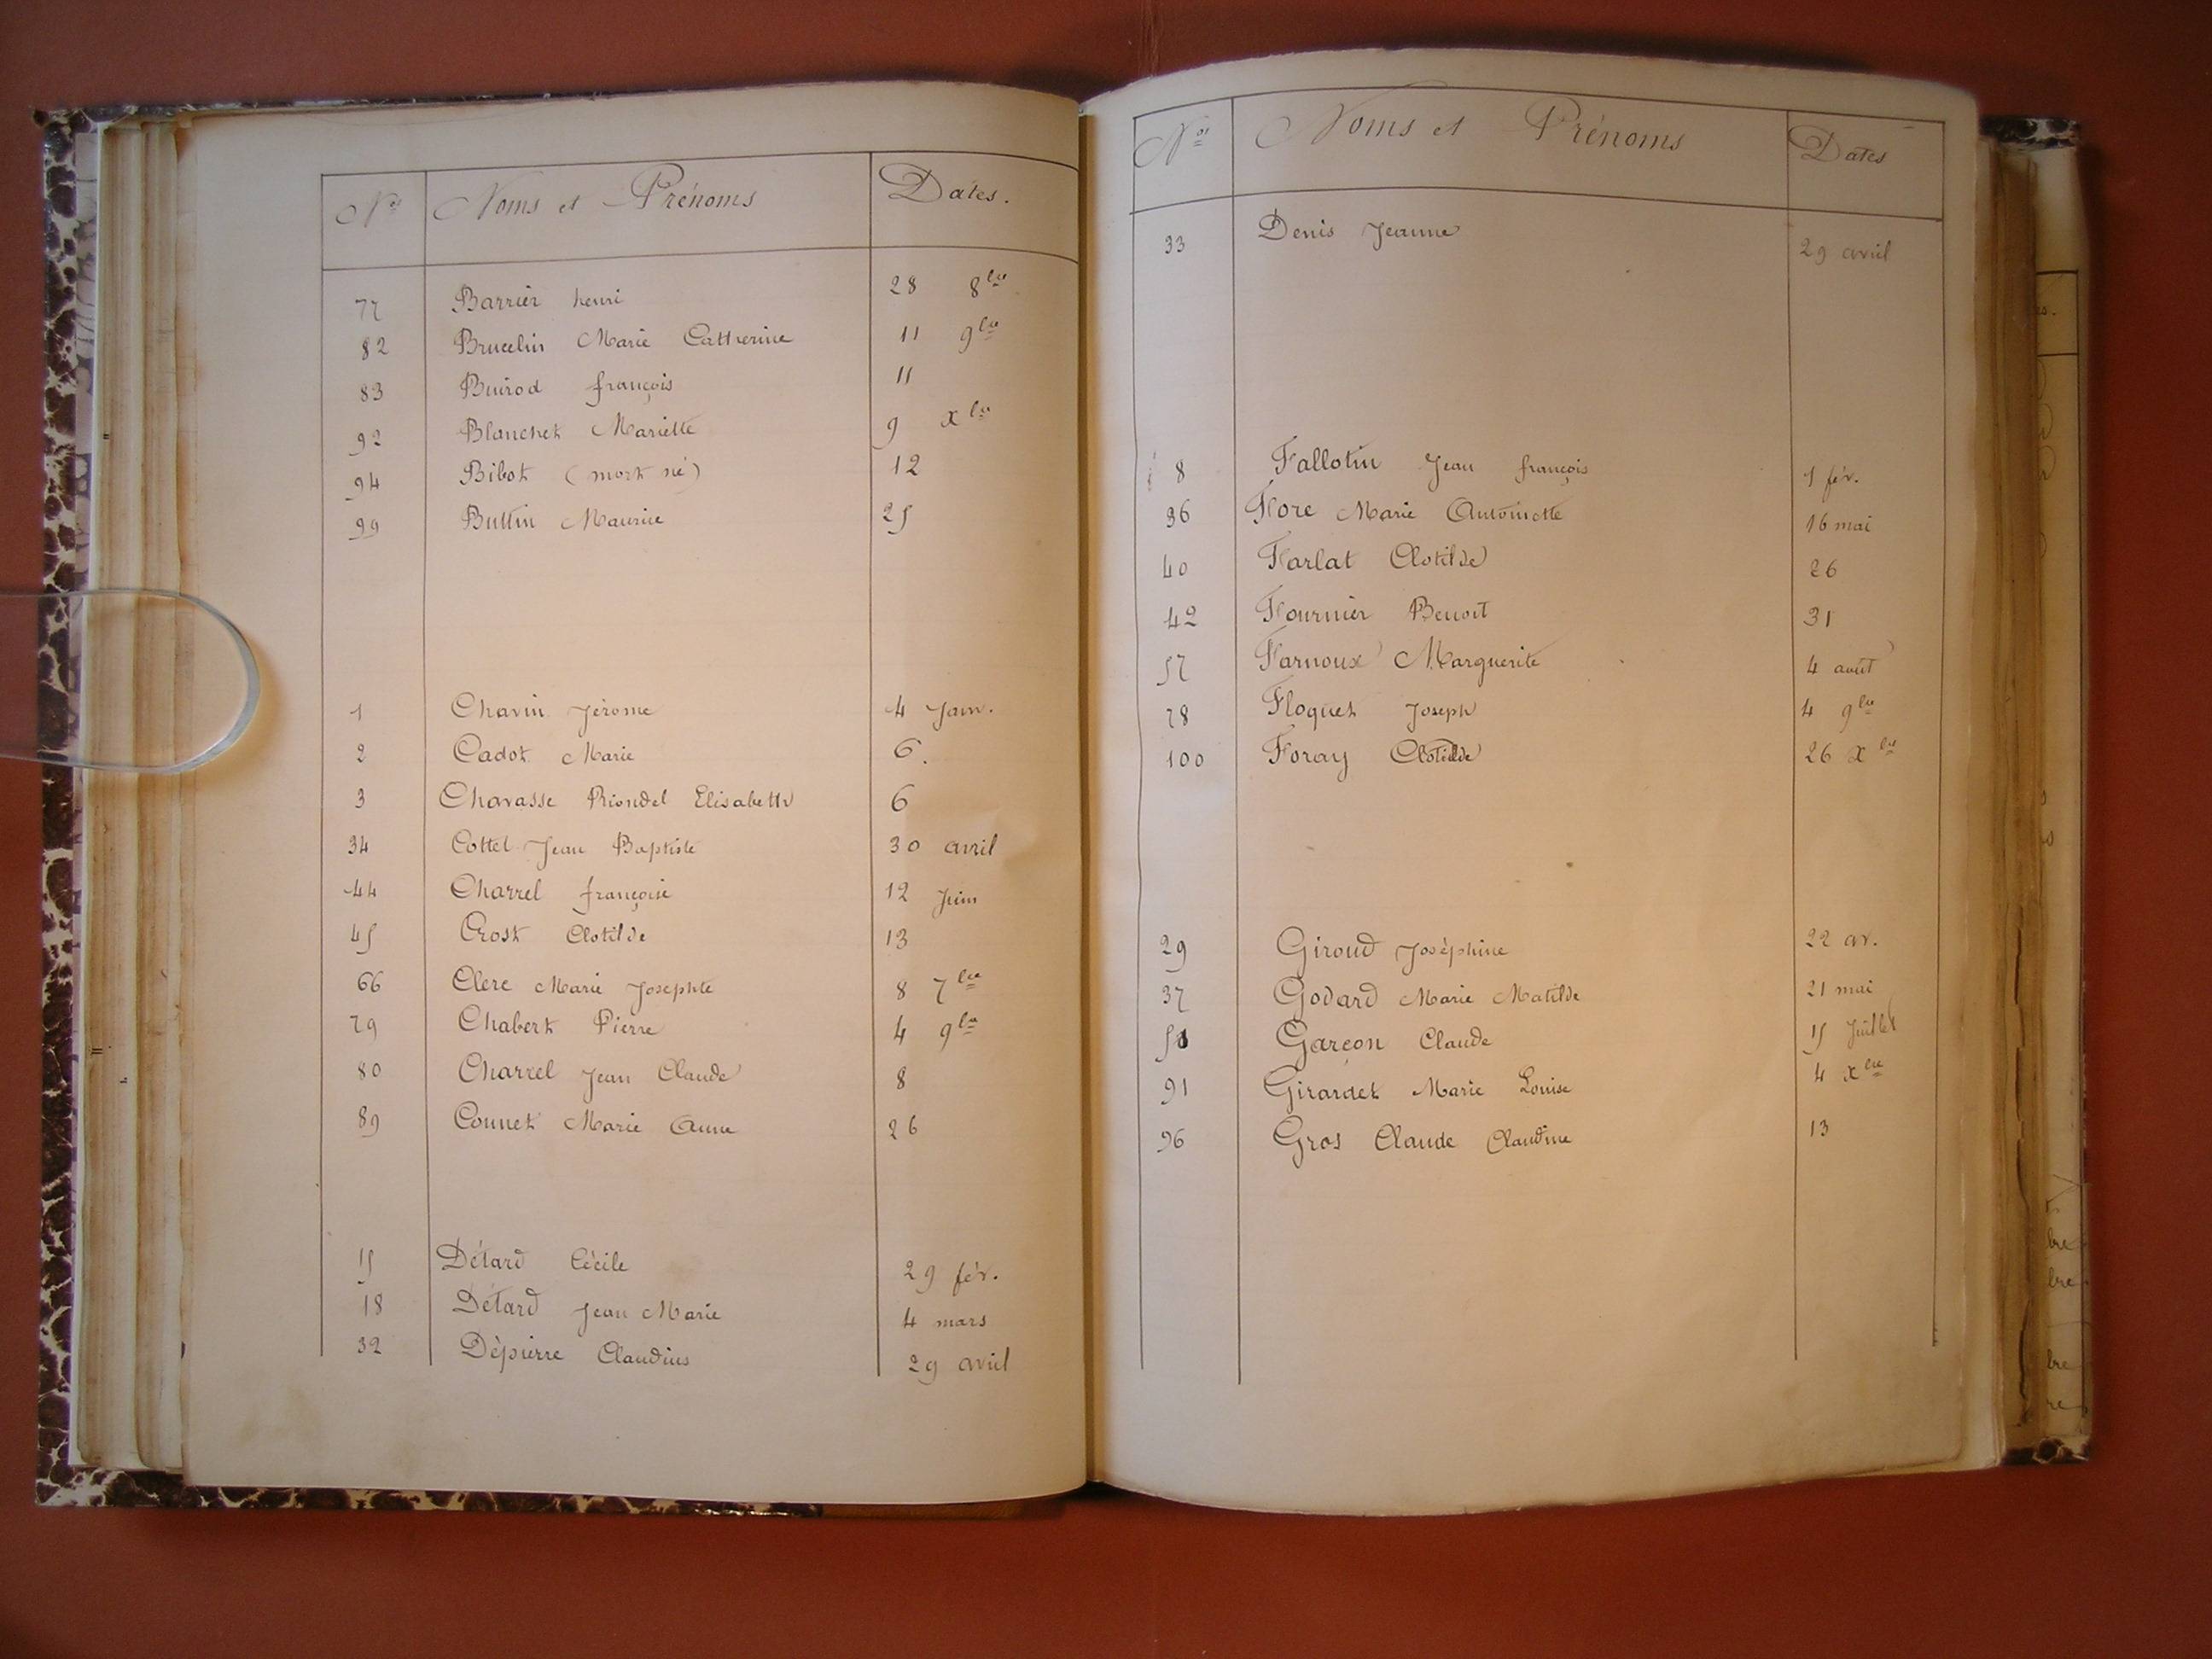 Nos Noms et Prénoms Dates.
77 Barrier henri 28 8bre
82 Brucelin Marie Catherine 11 9bre
83 Buirod françois 11
92 Blanchet Mariette 9 xbre
94 Bibot (mort né) 12
99 Buttin Maurice 25
1 Chavin Jérome 4 Janv.
2 Cadot Marie 6.
3 Chavasse Riondel Elisabeth 6
34 Cottel Jean Baptiste 30 avril
44 Charrel françoise 12 Juin
45 Crost Clotilde 13
66 Clerc Marie Josephte 8 7bre
79 Chabert Pierre 4 9bre
80 Charrel Jean Claude 8
89 Connet Marie Anne 26
15 Détard Cécile 29 fév.
18 Détard Jean Marie 4 mars
32 Dépierre Claudius 29 avril
Nos Noms et Prénoms Dates
33 Denis Jeanne 29 avril
8 Fallotin Jean françois 1 fév.
36 Flore Marie Antoinette 16 mai
40 Farlat Clotilde 26
42 Fournier Benoit 31
57 Farnoux Marguerite 4 août
78 Floquet Joseph 4 9bre
100 Foray Clotilde 26 xbre
29 Giroud Joséphine 22 av.
37 Godard Marie Matilde 21 mai
51 Garçon Claude 15 Juillet
91 Girardet Marie Louise 4 xbre
96 Gros Claude Claudine 13